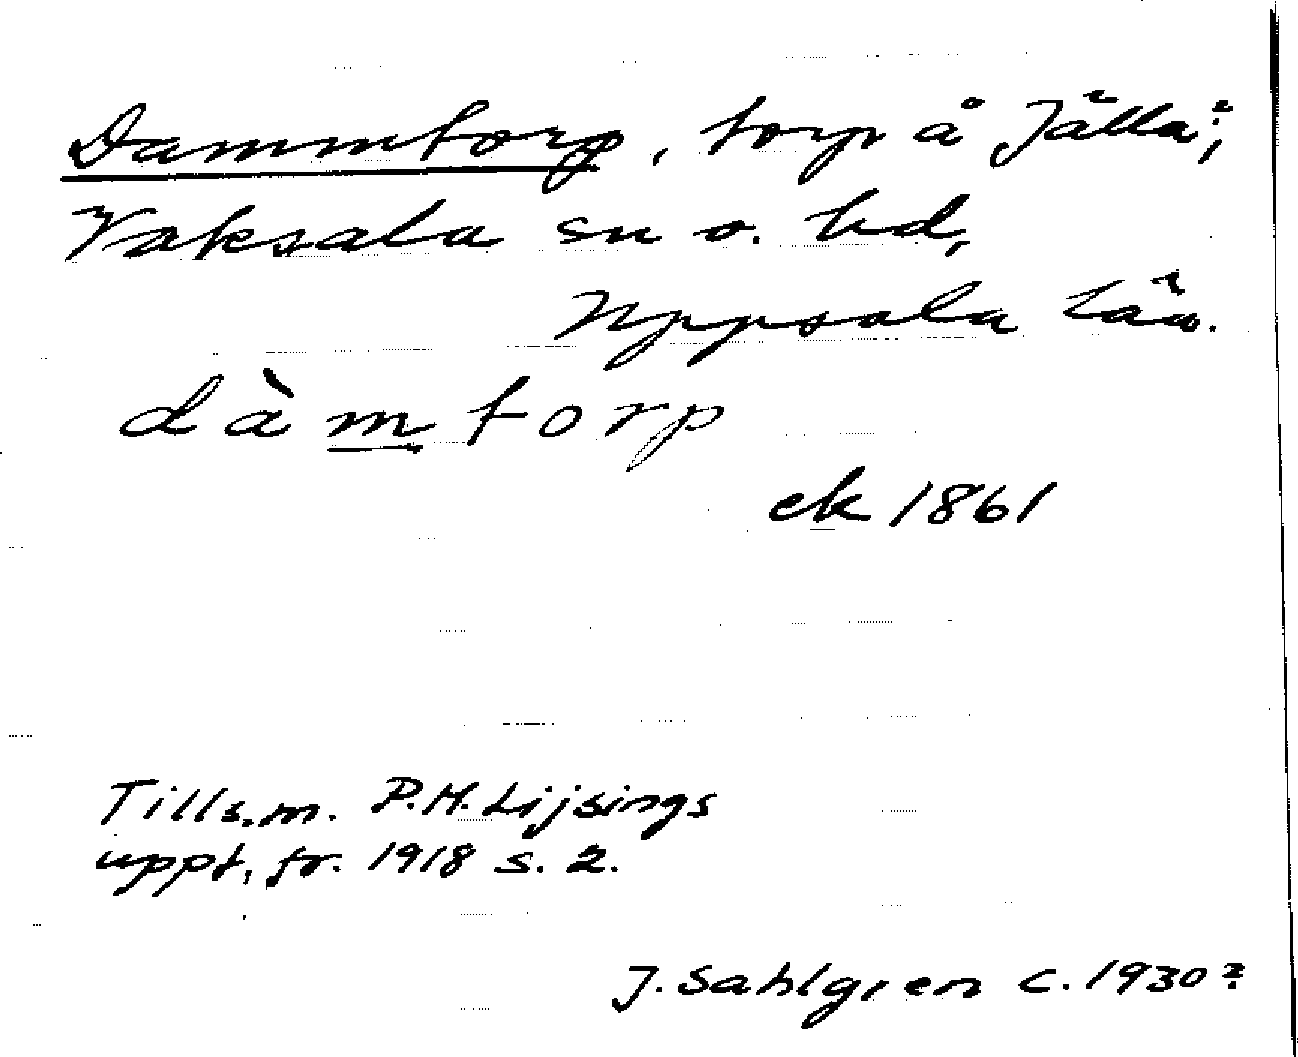 Dammtorp, torp å Jälla;
Vaksala sn o. hd,
Uppsala län.
dàmtorp
ek 1861
Tills.m. P.H. Lijsings
uppt. fr. 1918 s. 2.
J. Sahlgren c. 1930?